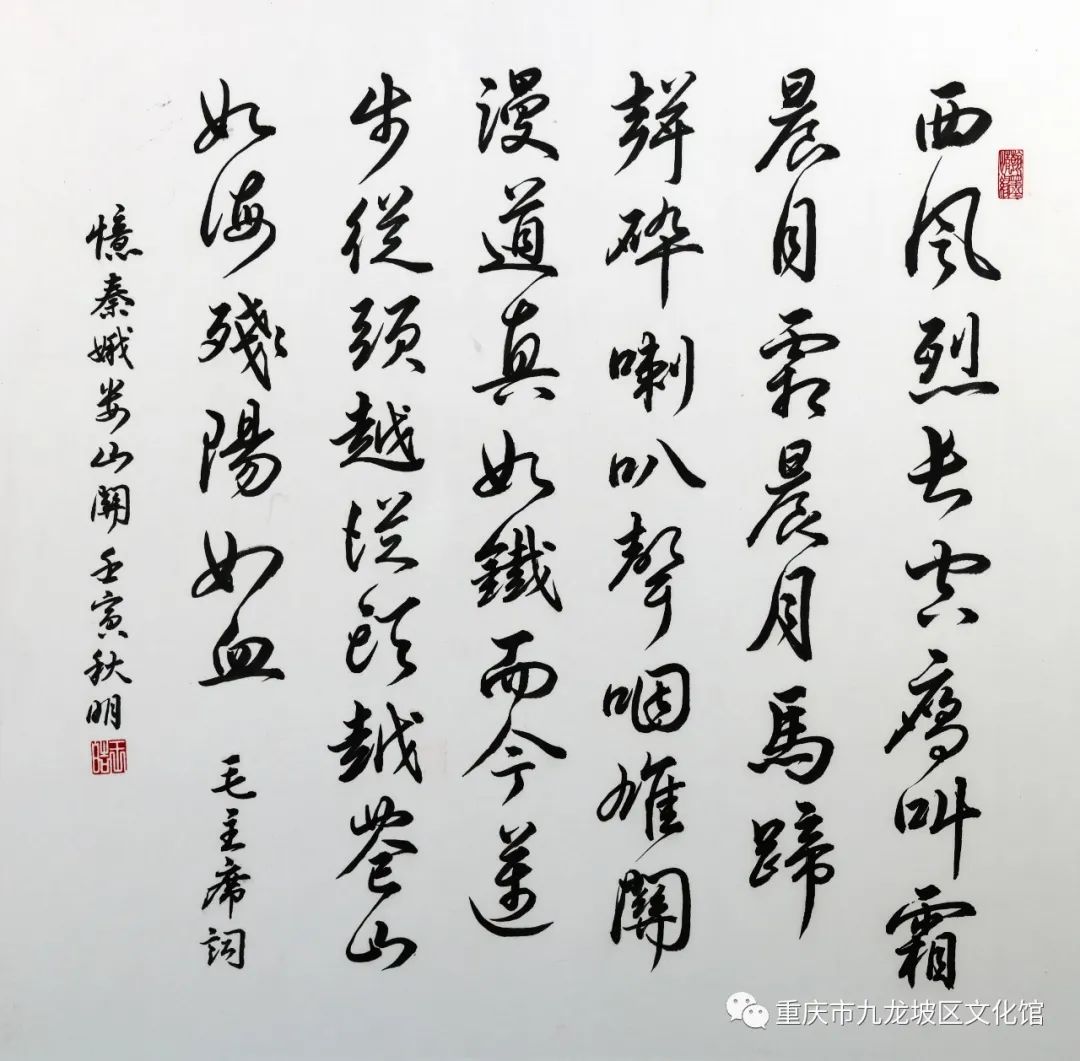 西風烈長空鴈叫霜
晨月霜晨月馬蹄
聲碎喇叭聲咽雄關
漫道真如鐵而今邁
步從頭越從頭越蒼山
如海殘陽如血 毛主席詞
憶秦娥娄山關 壬寅秋明
重庆市九龙坡区文化馆